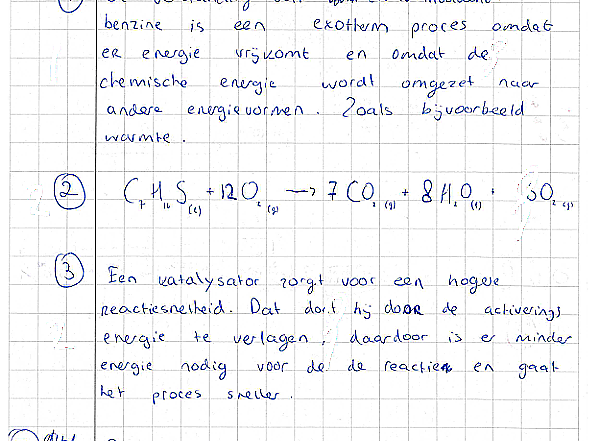 benzine is een exotherm proces omdat
er energie vrijkomt en omdat de
chemische energie wordt omgezet naar
andere energievormen. Zoals bijvoorbeeld
warmte.
② C₇H₁₆S(l) + 12O₂(g) → 7CO₂(g) + 8H₂O(l) + SO₂(g)
③ Een katalysator zorgt voor een hogere
reactiesnelheid. Dat doet hij door de activerings
energie te verlagen, daardoor is er minder
energie nodig voor de de reactie en gaat
het proces sneller.